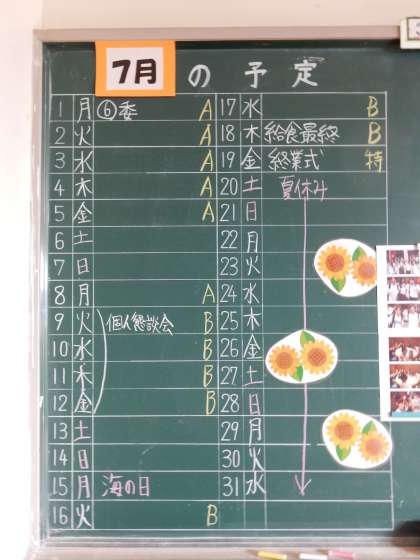 7月の予定
1 月 ⑥委 A
2 火 A
3 水 A
4 木 A
5 金 A
6 土
7 日
8 月 A
9 火 個人懇談会 B
10 水 B
11 木 B
12 金 B
13 土
14 日
15 月 海の日
16 火 B
17 水 B
18 木 給食最終 B
19 金 終業式 特
20 土 夏休み
21 日
22 月
23 火
24 水
25 木
26 金
27 土
28 日
29 月
30 火
31 水